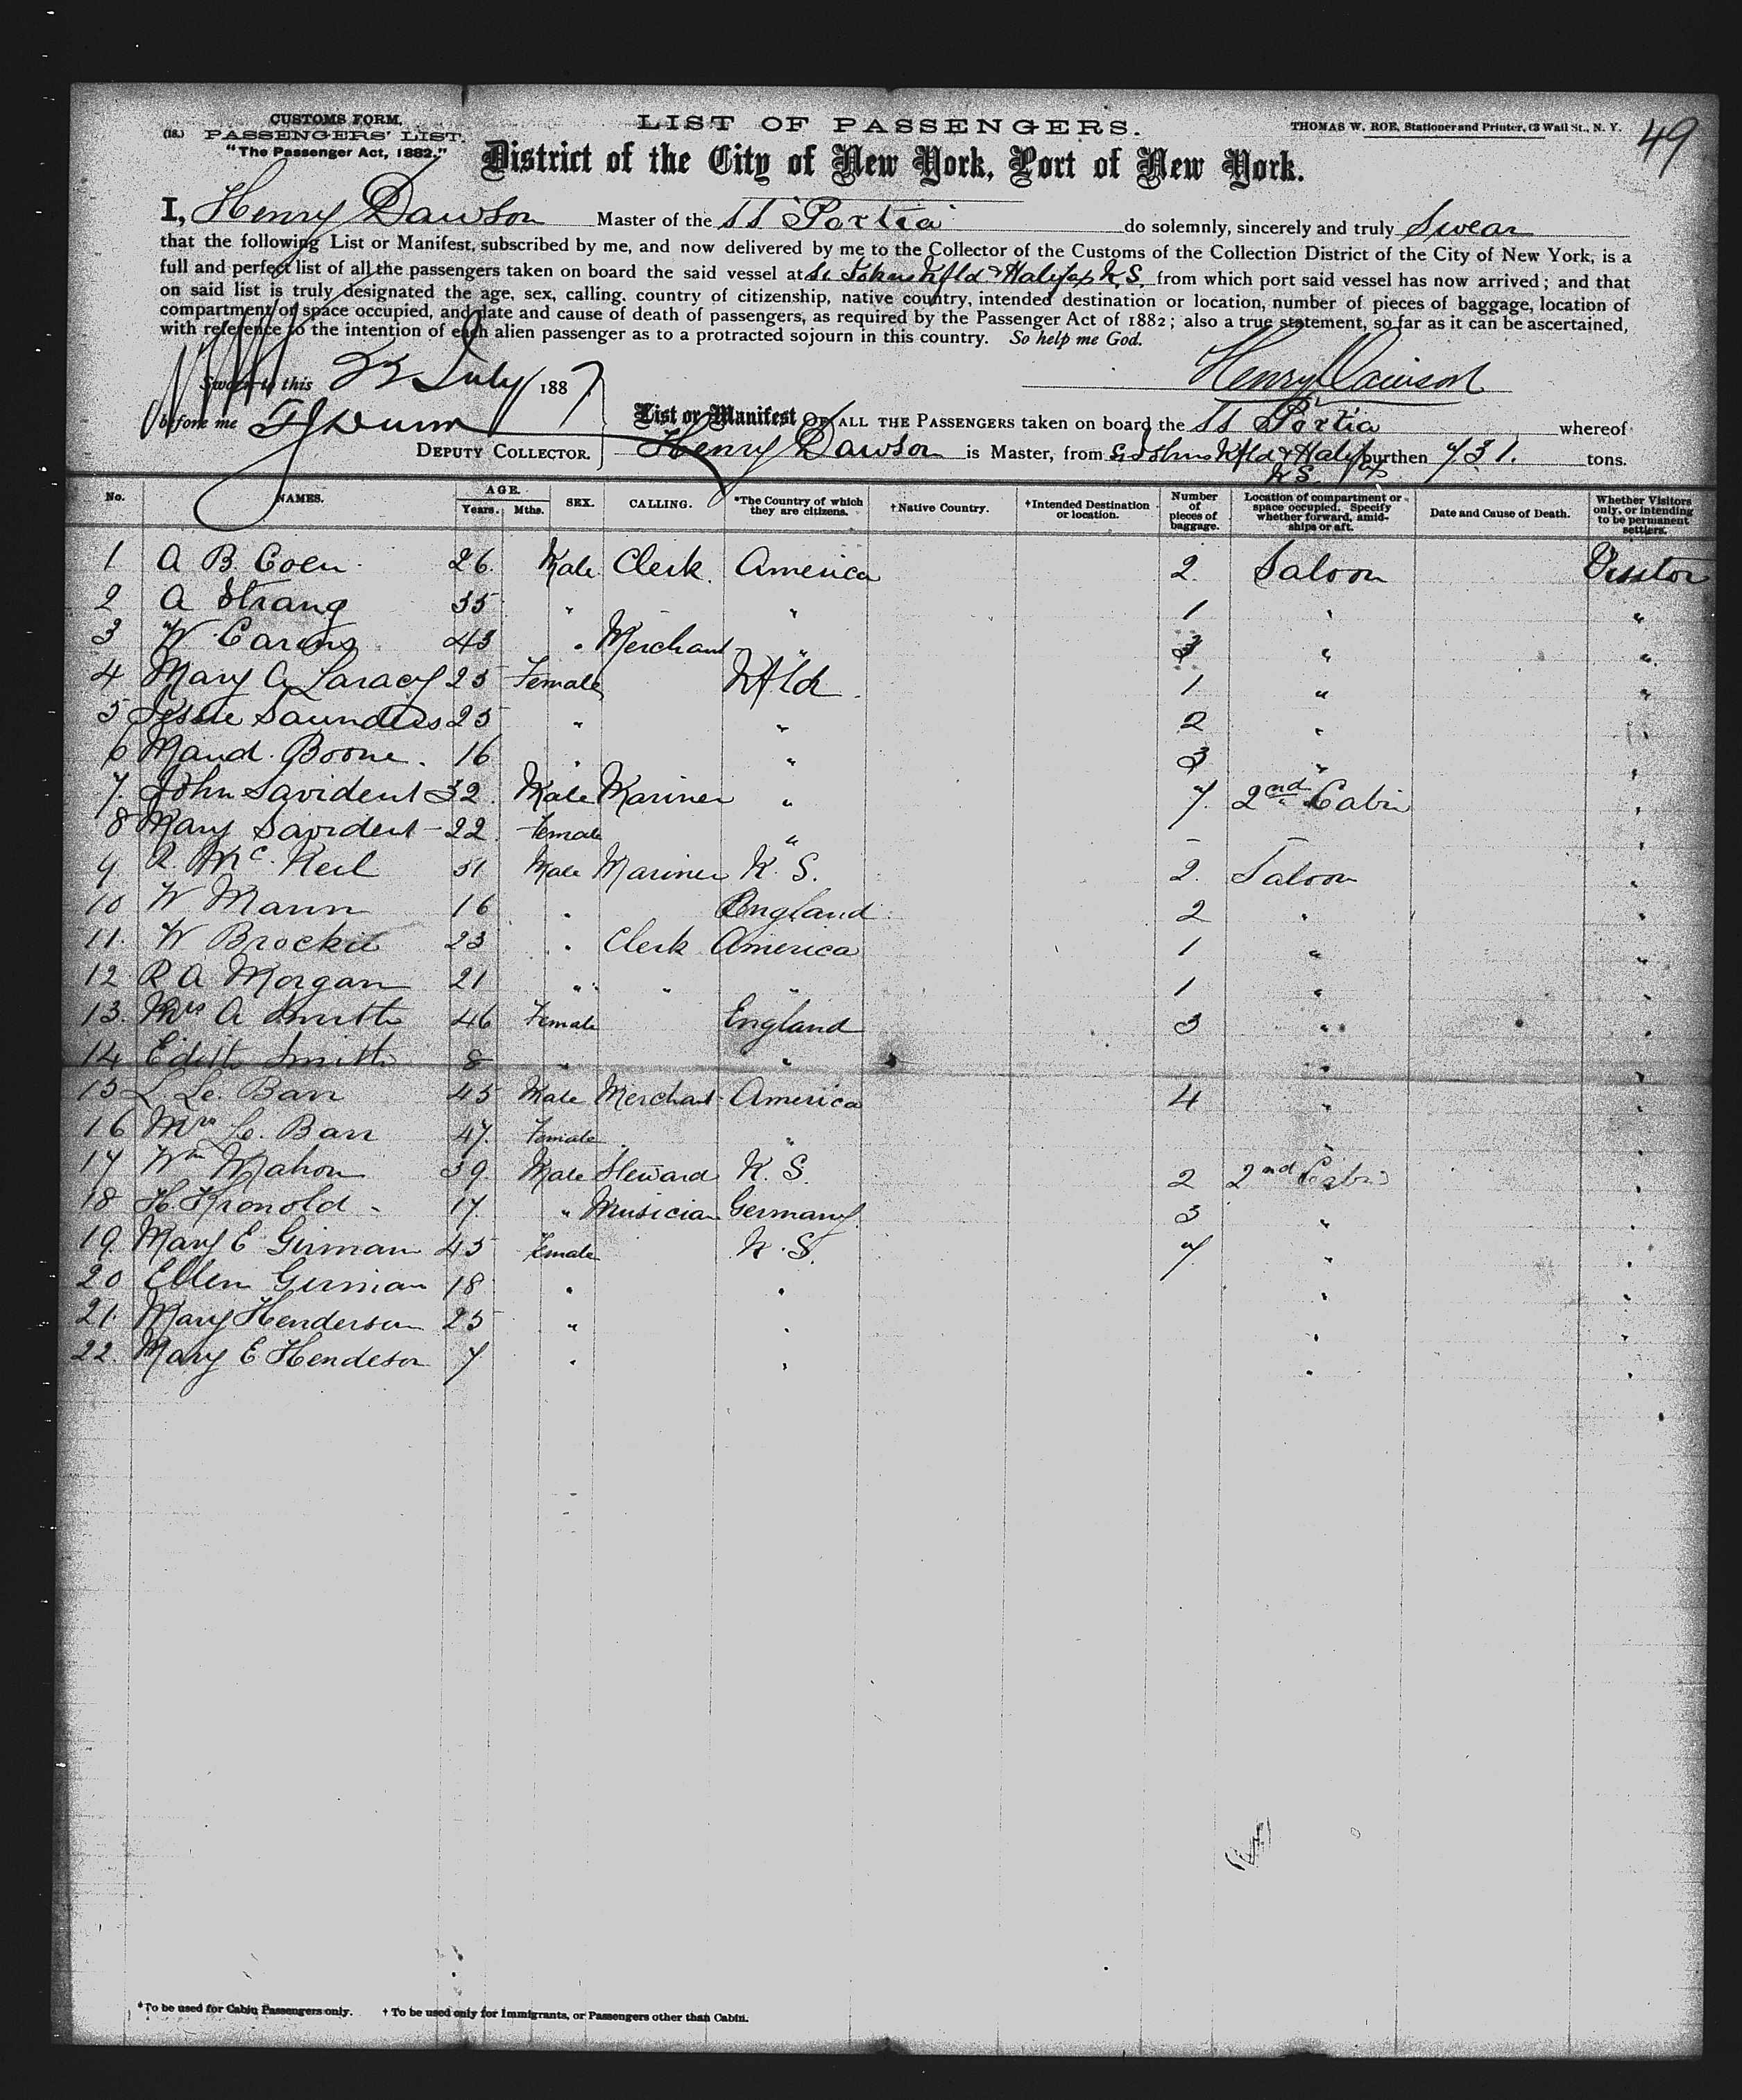 CUSTOMS FORM.
(18.) PASSENGERS' LIST.
"The Passenger Act, 1882."
LIST OF PASSENGERS.
THOMAS W. ROE, Stationer and Printer, 63 Wall St., N. Y.
49
District of the City of New York, Port of New York.
I, Henry Dawson Master of the SS "Portia" do solemnly, sincerely and truly Swear
that the following List or Manifest, subscribed by me, and now delivered by me to the Collector of the Customs of the Collection District of the City of New York, is a
full and perfect list of all the passengers taken on board the said vessel at St. Johns Nfld & Halifax N.S. from which port said vessel has now arrived; and that
on said list is truly designated the age, sex, calling, country of citizenship, native country, intended destination or location, number of pieces of baggage, location of
compartment or space occupied, and date and cause of death of passengers, as required by the Passenger Act of 1882; also a true statement, so far as it can be ascertained,
with reference to the intention of each alien passenger as to a protracted sojourn in this country. So help me God.
Sworn to this 22 July 1887.
Henry Dawson
before me
DEPUTY COLLECTOR.
List or Manifest OF ALL THE PASSENGERS taken on board the SS Portia whereof
Henry Dawson is Master, from St Johns Nfld & Halifax N S. burthen 731. tons.
No. NAMES. AGE. Years. Mths. SEX. CALLING. *The Country of which they are citizens. †Native Country. †Intended Destination or location. Number of pieces of baggage. Location of compartment or space occupied. Specify whether forward, amidships or aft. Date and Cause of Death. Whether Visitors only, or intending to be permanent settlers.
1 A B Coen 26. Male Clerk. America 2. Saloon Visitor
2 A Strang 35 " " 1 " "
3 W Cairns 43 " Merchant " 3 " "
4 Mary A Laracy 25 Female Nfld 1 " "
5 Jessie Saunders 25 " " 2 "
6 Maud Boone. 16 " " 3 " "
7. John Savident 32. Male Mariner " 7. 2nd Cabin "
8 Mary Savident 22. Female " - "
9 R. Mc. Neil 51 Male Mariner N. S. 2. Saloon "
10 W Mann 16 " England 2 " "
11. W Brockie 23 " Clerk America 1 " "
12 R A Morgan 21 " " " 1 " "
13. Mrs A Smith 46 Female England 3 " "
14 Edith Smith 8 " " " "
15 L. Le. Barr 45 Male Merchant America 4 " "
16 Mrs Le. Barr 47. Female " " "
17 Wm Mahon 39 Male Steward N. S. 2 2nd Cabin "
18 H. Kronold 17. " Musician Germany. 3 " "
19 Mary E Girman 45 Female N. S. 7. " "
20 Ellen Girman 18 " " " "
21. Mary Henderson 25 " " " "
22. Mary E Hendeson 7 " " " "
*To be used for Cabin Passengers only. † To be used only for Immigrants, or Passengers other than Cabin.